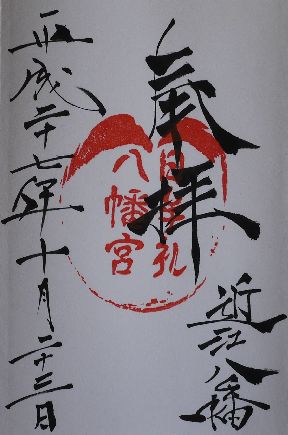 奉拝
近江八幡
日牟礼
八幡宮
平成二十七年十月二十三日